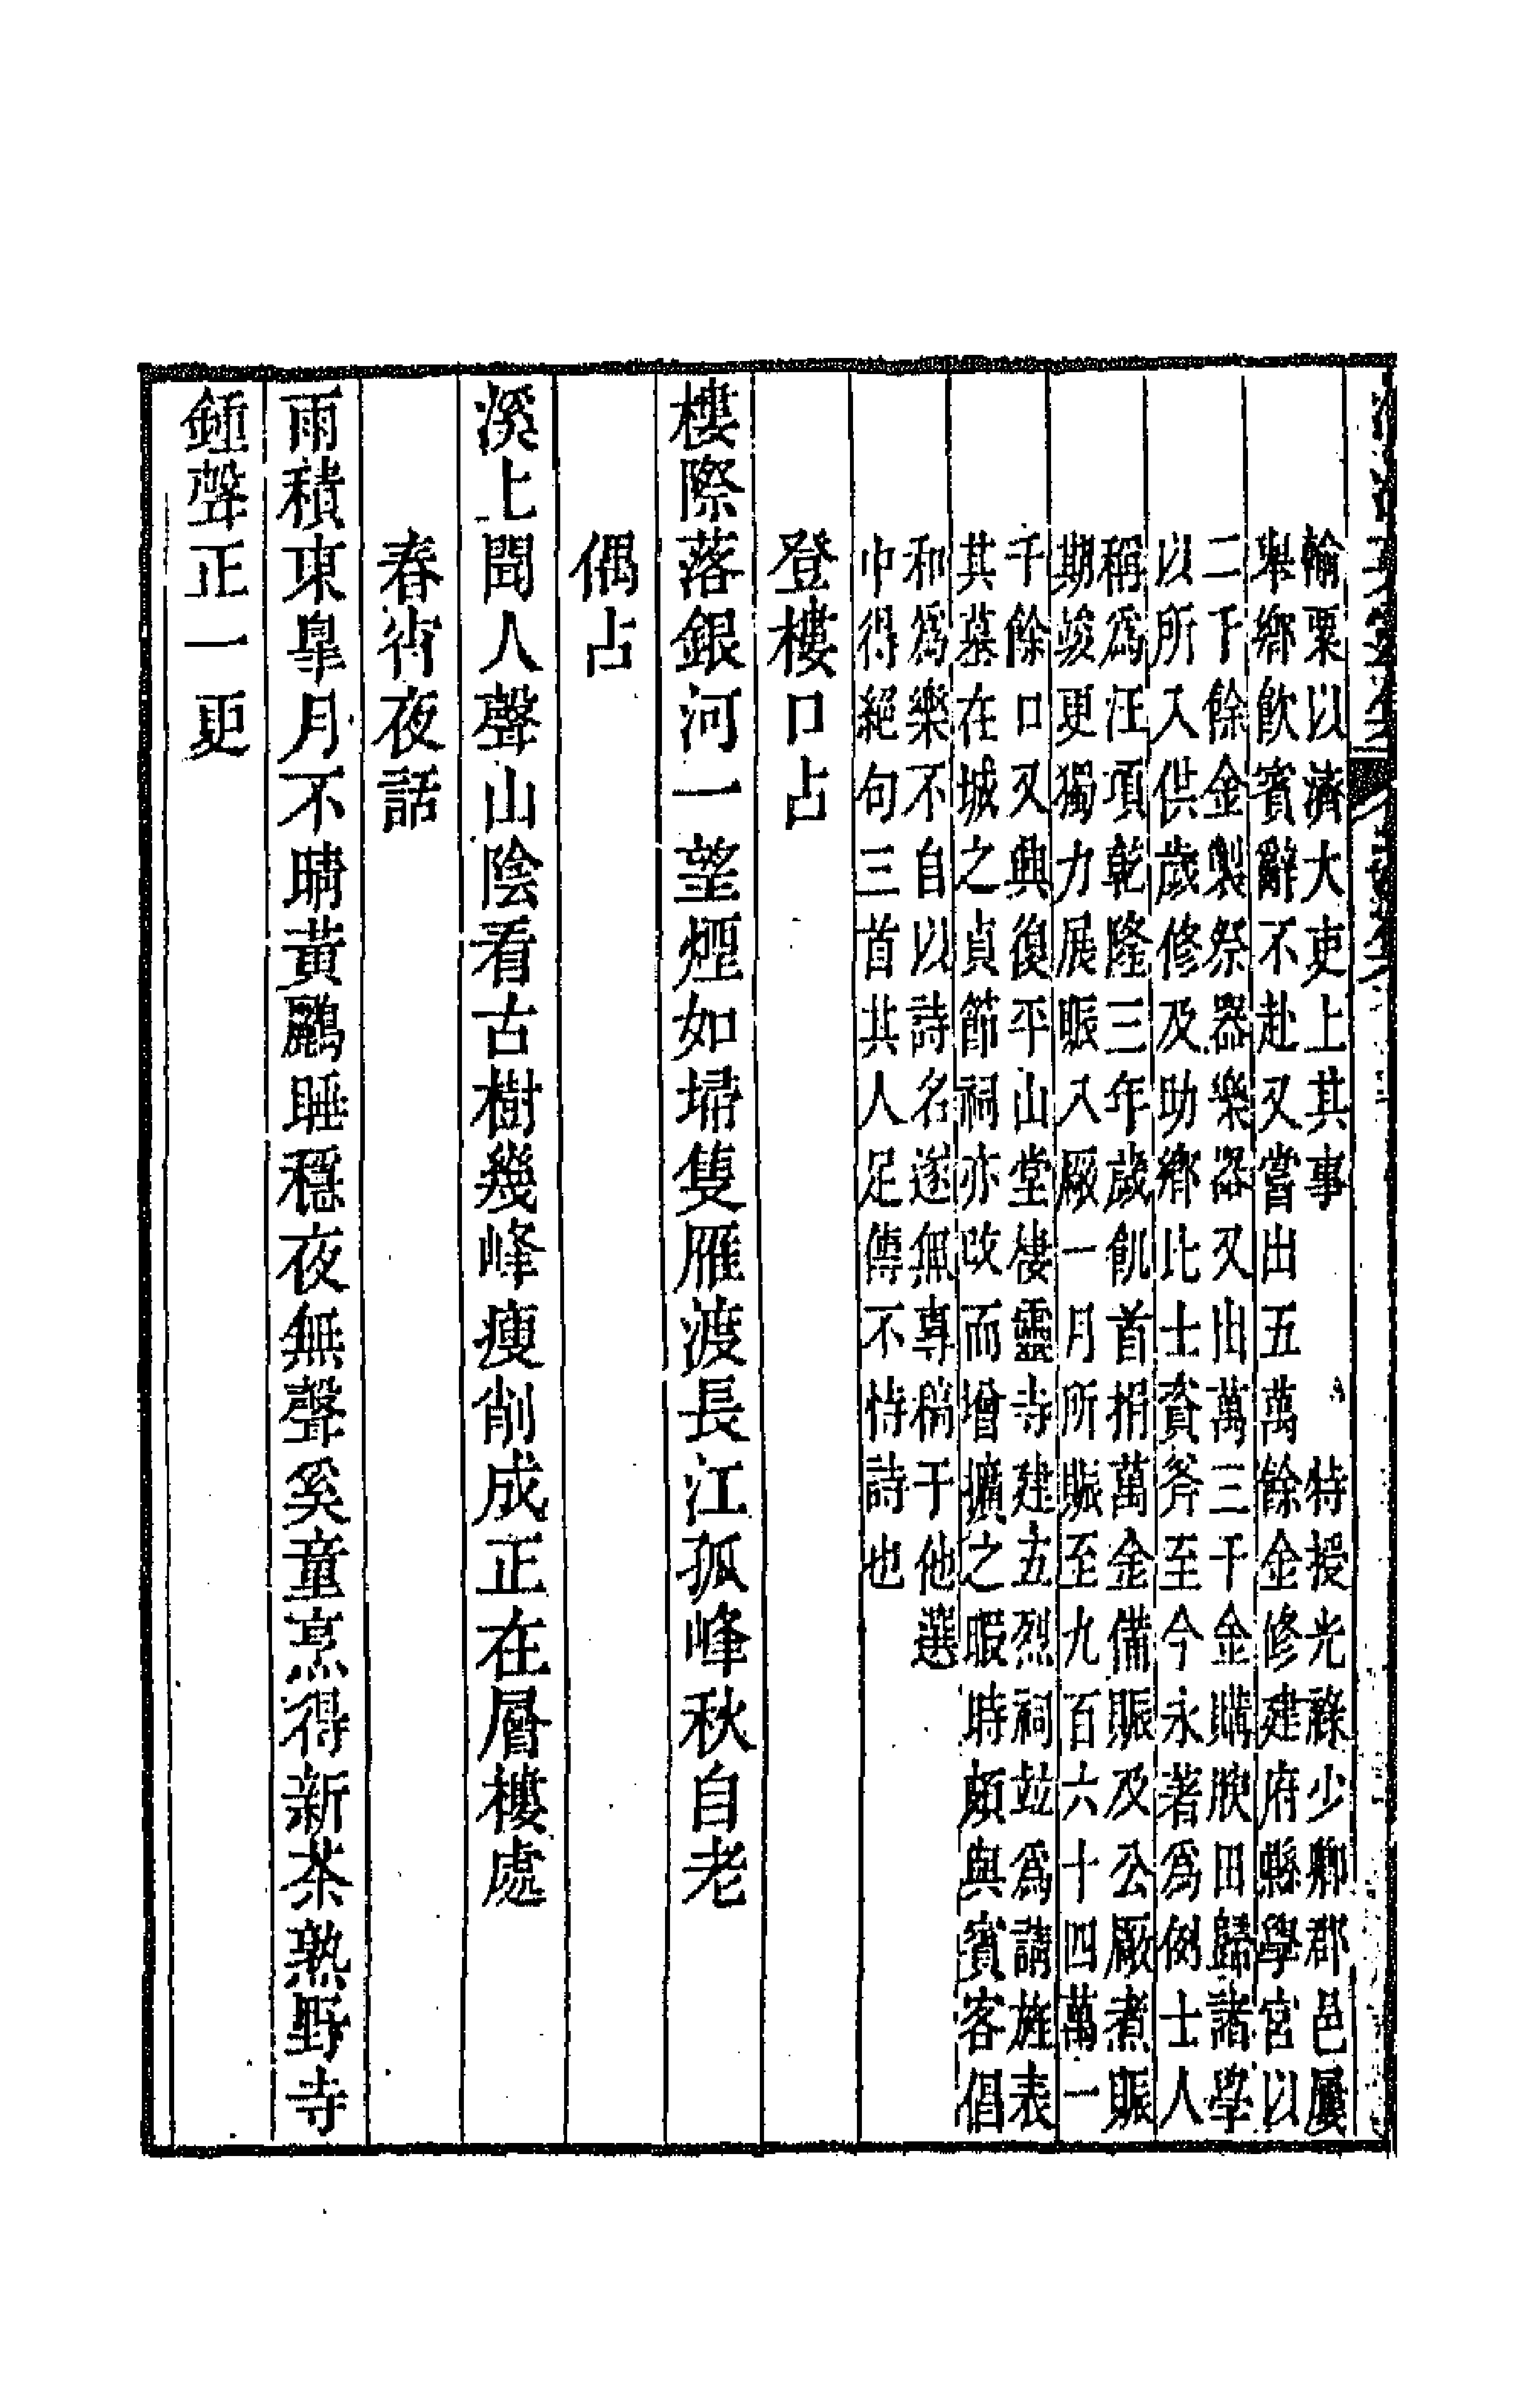 輸粟以濟大吏上其事特授光祿少卿郡邑屢
舉鄉飲賓辭不赴又嘗出五萬餘金修建府縣學宮以
二千餘金製祭器樂器又出萬三千金購腴田歸諸學
以所入供歲修及助鄉比士資斧至今永著爲例士人
稱爲汪項乾隆三年歲飢首捐萬金備賑及公厰煮賑
期竣更獨力展賑入厰一月所賑至九百六十四萬一
千餘口又典復平山堂棲靈寺建五烈祠竝爲請旌表
其墓在城之貞節祠亦改而增擴之暇時頗與賓客倡
和爲樂不自以詩名遂無專稿于他選
中得絕句三首其人足傳不恃詩也
登樓口占
樓際落銀河一望煙如埽隻雁渡長江孤峰秋自老
偶占
溪上聞人聲山陰看古樹幾峰瘦削成正在層樓處
春宵夜話
雨積東皐月不晴黃鸝睡穩夜無聲奚童烹得新茶熟野寺
鍾聲正一更